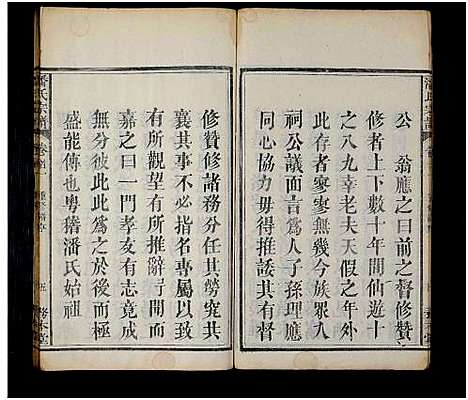 公　翁應之曰前之督修贊
修者上下數十年間仙遊十
之八九幸老夫天假之年外
此存者寥寥無幾今族眾入
祠公議面言為人子孫理應
同心協力毋得推諉其有督
修贊修諸務分任其勞究共
襄其事不必指名專屬以致
有所觀望有所推辭苛聞而
嘉之曰一門孝友有志竟成
無分彼此此為之於後而
盛能傳也粵稽潘氏始祖
潘氏宗譜
卷首
五